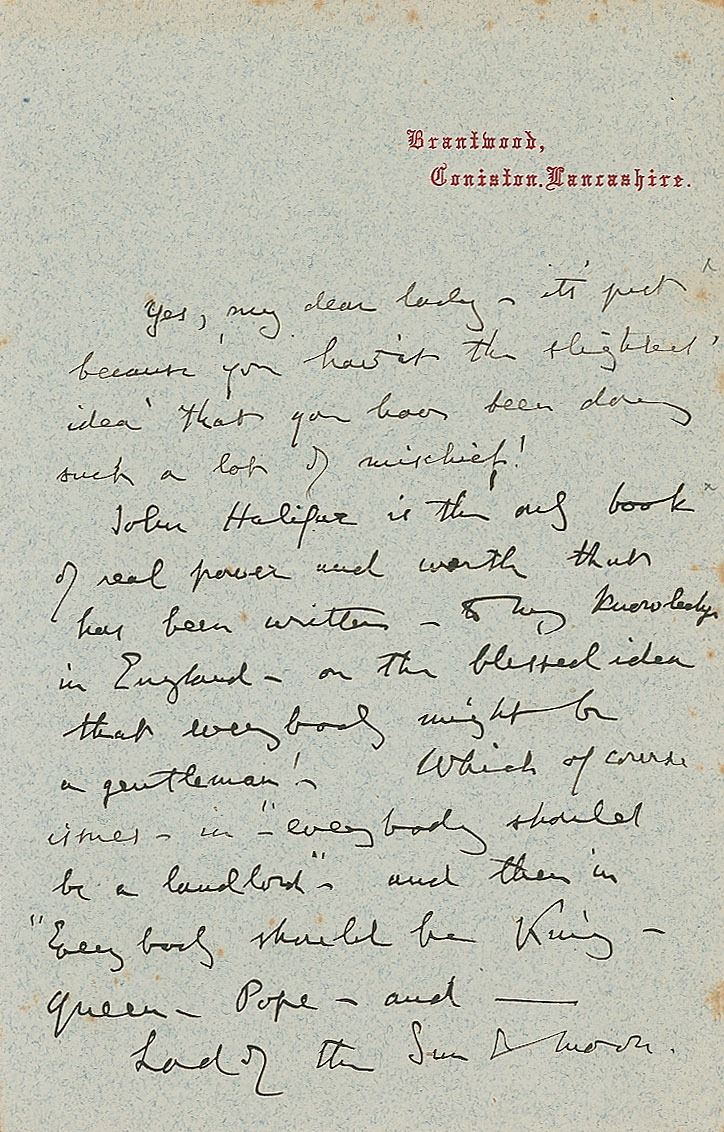 Brantwood,
Coniston. Lancashire.
Yes, my dear lady - it's just
because you hav'nt the slightest
idea that you have been doing
such a lot of mischief!
John Halifax is the only book
of real power and worth that
has been written - to my knowledge
in England - on the blessed idea
that everybody might be
a gentleman! - Which of course
issues - in - "everybody should
be a landlord" - and then in
"Everybody should be King -
Queen - Pope - and ———
Lord of the Sun & Moon.